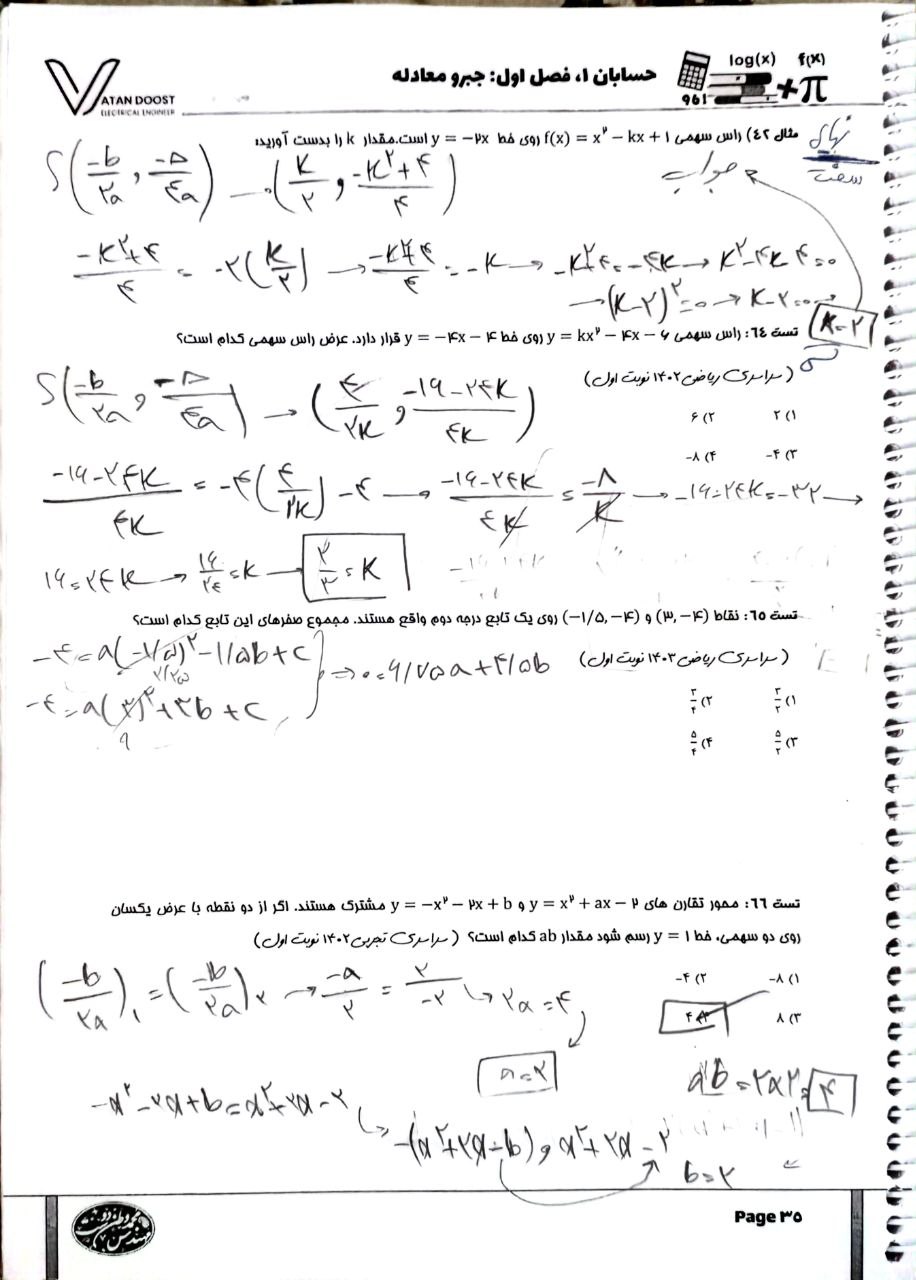 VATAN DOOST
ELECTRICAL ENGINEER
حسابان ۱، فصل اول: جبر و معادله
log(x) f(x)
+π
۹۶۱
مثال ۴۲) راس سهمی f(x) = x² − kx + ۱ روی خط y = −۲x است.مقدار k را بدست آورید؛
نهای
سفت
جواب
S(-b/۲a , -Δ/۴a) → (K/۲ , -K²+۴/۴)
-K²+۴/۴ = -۲(K/۲) → -K²+۴/۴ = -K → -K²+۴=-۴K → K²-۴K-۴=۰
→ (K-۲)²=۰ → K-۲=۰ →
K=۲
تست ٦٤: راس سهمی y = kx² − ۴x − ۶ روی خط y = −۴x − ۴ قرار دارد. عرض راس سهمی کدام است؟
(سراسری ریاضی ۱۴۰۲ نوبت اول)
S(-b/۲a , -Δ/۴a) → (۴/۲K , -۱۶-۲۴K/۴K)
۱) ۲ ۲) ۶
۳) ۴- ۴) ۸-
-۱۶-۲۴K/۴K = -۴(۴/۲K) -۴ → -۱۶-۲۴K/۴K = -۸/K → -۱۶-۲۴K=-۳۲ →
۱۶=۲۴K → ۱۶/۲۴=K → ۲/۳=K
تست ٦٥: نقاط (۳, −۴) و (−۱/۵, −۴) روی یک تابع درجه دوم واقع هستند. مجموع صفرهای این تابع کدام است؟
(سراسری ریاضی ۱۴۰۳ نوبت اول)
-۴=a(-۱/۵)²-۱/۵b+c
۲/۲۵
-۴=a(۳)²+۳b+c
۹
⇒ ۰=۶/۷۵a+۴/۵b
۱) ۳/۲ ۲) ۳/۴
۳) ۵/۲ ۴) ۵/۴
تست ٦٦: محور تقارن های y = x² + ax − ۲ و y = −x² − ۲x + b مشترک هستند. اگر از دو نقطه با عرض یکسان
روی دو سهمی، خط y = ۱ رسم شود مقدار ab کدام است؟ (سراسری تجربی ۱۴۰۲ نوبت اول)
(-b/۲a)₁=(-b/۲a)₂ → -a/۲ = ۲/-۲ → ۲a=۴
۱) ۸- ۲) ۴-
۳) ۸ ۴) ۴
a=۲
ab=۲×۲=۴
-x²-۲x+b=x²+۲x-۲
-(x²+۲x-b) , x²+۲x-۲
b=۲
Page ۳۵